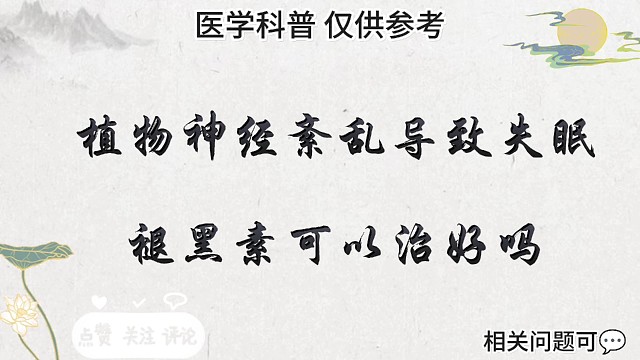 医学科普 仅供参考
植物神经紊乱导致失眠
褪黑素可以治好吗
点赞 关注 评论
相关问题可